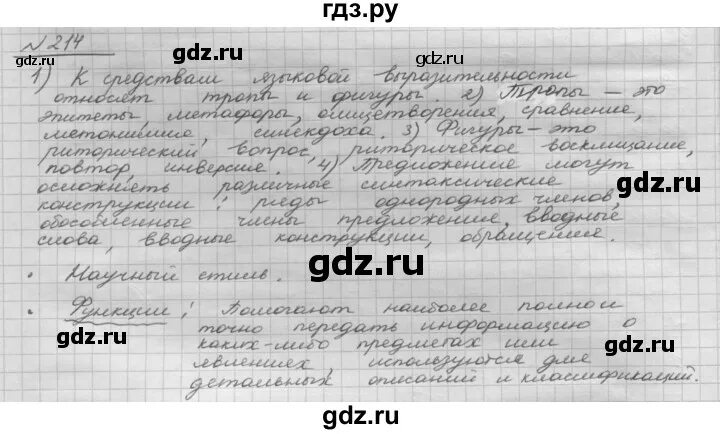 гдз.ру
№ 214
1) К средствам языковой выразительности
относят тропы и фигуры. 2) Тропы – это
эпитеты, метафоры, олицетворения, сравнение,
метонимия, синекдоха. 3) Фигуры – это
риторический вопрос, риторическое восклицание,
повтор, инверсия. 4) Предложение могут
осложнять различные синтаксические
конструкции: ряды однородных членов,
обособленные члены предложения, вводные
слова, вводные конструкции, обращения.
• Научный стиль.
• Функции: Помогают наиболее полно и
точно передать информацию о
каких-либо предметах или
явлениях, используются для
детальных описаний и классификаций.
gdz.ru
gdz.ru
gdz.ru
gdz.ru
gdz.ru
gdz.ru
gdz.ru
gdz.ru
gdz.ru